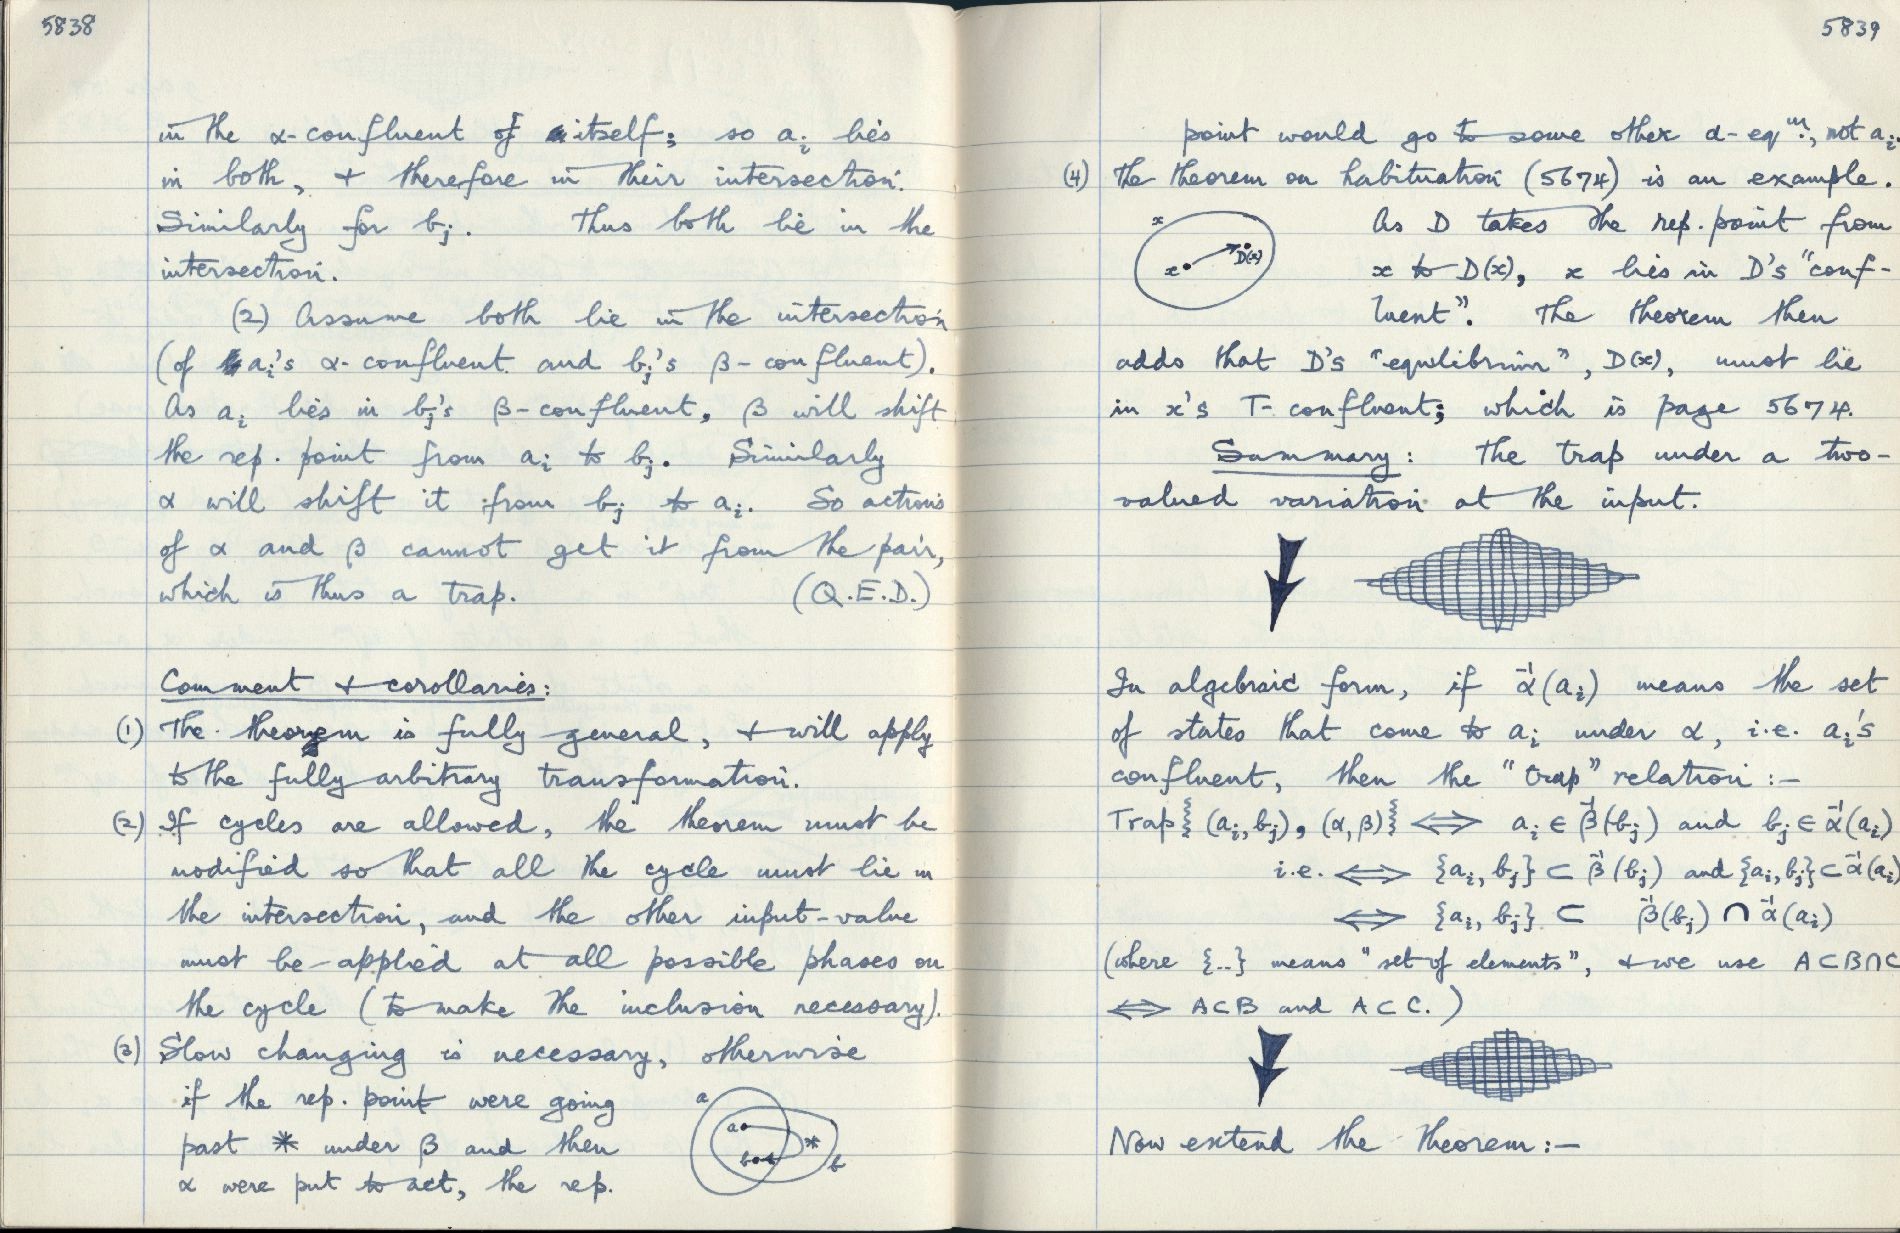 5838
in the α-confluent of itself; so aᵢ lies
in both, + therefore in their intersection.
Similarly for bⱼ. Thus both lie in the
intersection.
(2) Assume both lie in the intersection
(of aᵢ's α-confluent and bⱼ's β-confluent).
As aᵢ lies in bⱼ's β-confluent, β will shift
the rep. point from aᵢ to bⱼ. Similarly
α will shift it from bⱼ to aᵢ. So actions
of α and β cannot get it from the pair,
which is thus a trap. (Q.E.D.)
Comment + corollaries:
(1) The theorem is fully general, + will apply
to the fully arbitrary transformation.
(2) If cycles are allowed, the theorem must be
modified so that all the cycle must lie in
the intersection, and the other input-value
must be applied at all possible phases on
the cycle (to make the inclusion necessary).
(3) Slow changing is necessary, otherwise
if the rep. point were going
past * under β and then
α were put to act, the rep.
a
a
*
b
b
5839
point would go to some other α-eqᵐ., not aᵢ.
(4) The theorem on habituation (5674) is an example.
x
x
D(x)
As D takes the rep. point from
x to D(x), x lies in D's "conf-
luent". The theorem then
adds that D's "equilibrium", D(x), must lie
in x's T-confluent; which is page 5674.
Summary: The trap under a two-
valued variation at the input.
In algebraic form, if α⁻¹(aᵢ) means the set
of states that come to aᵢ under α, i.e. aᵢ's
confluent, then the "trap" relation :-
Trap{(aᵢ, bⱼ), (α, β)} ⟺ aᵢ ∈ β⁻¹(bⱼ) and bⱼ ∈ α⁻¹(aᵢ)
i.e. ⟺ {aᵢ, bⱼ} ⊂ β⁻¹(bⱼ) and {aᵢ, bⱼ} ⊂ α⁻¹(aᵢ)
⟺ {aᵢ, bⱼ} ⊂ β⁻¹(bⱼ) ∩ α⁻¹(aᵢ)
(where {..} means "set of elements", + we use A⊂B∩C
⟺ A⊂B and A⊂C.)
Now extend the theorem :-